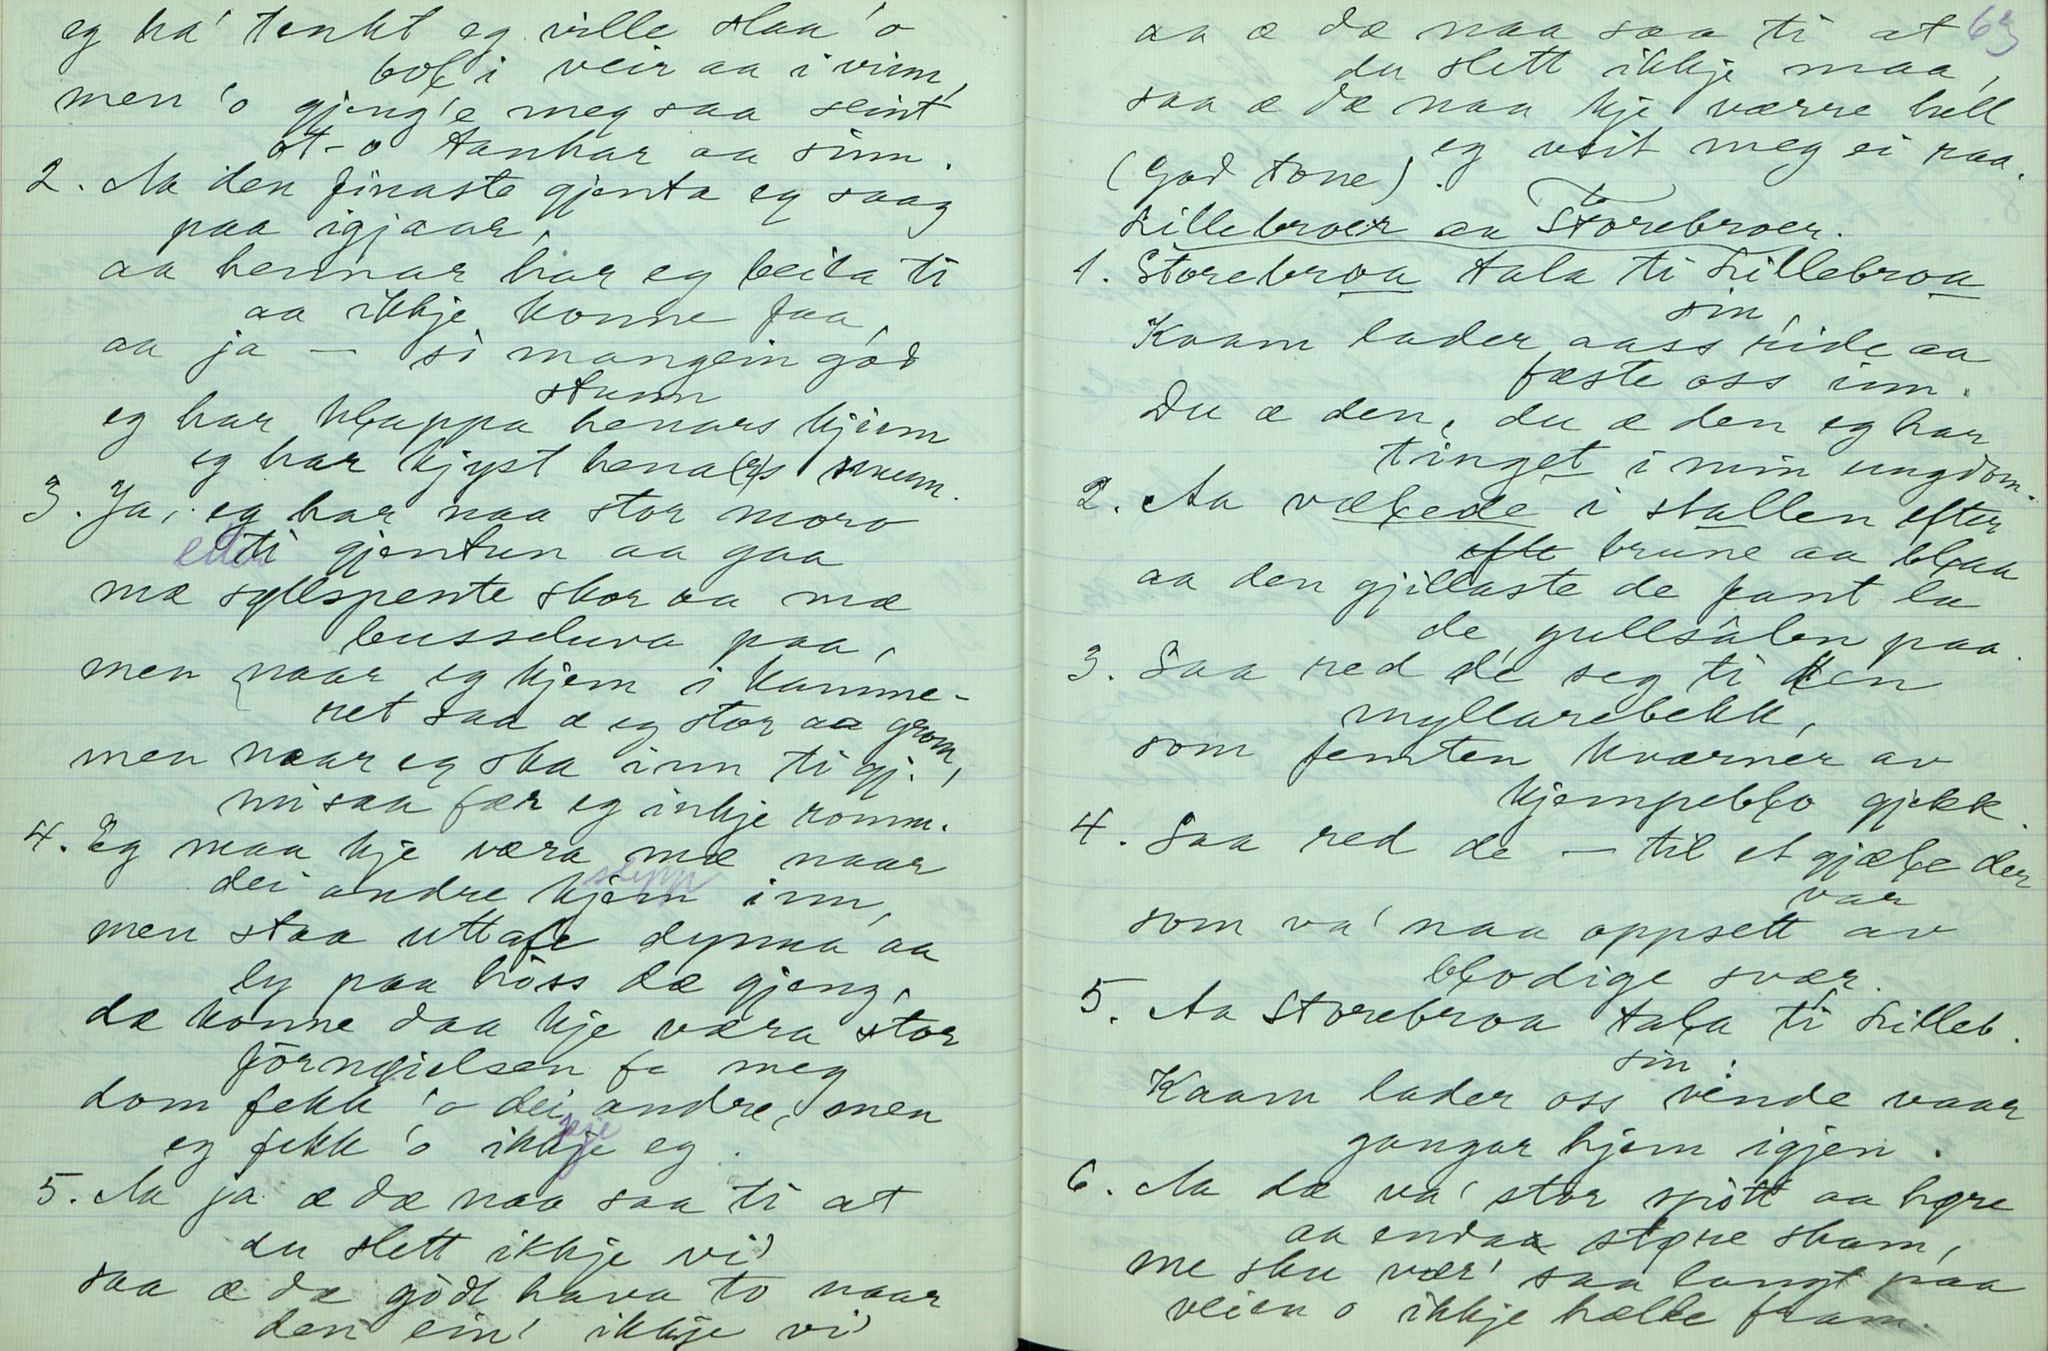 eg ha' tenkt eg ville slaa 'o
bol i veir aa i vinn,
men 'o gjeng'e meg saa seint
ot - o tankar aa sinn.
2. Aa den finaste gjenta eg saag
paa igjaar,
aa hennar har eg beila ti
aa ikkje konne faa,
aa ja - si mangein god
stunn
eg har klappa henars kjinn
eg har kjyst hena(r)s munn.
3. Ja, eg har naa stor moro
ette
ti gjentun aa gaa
mæ syllspente skor aa mæ
bussluva paa,
men naar eg kjem i kamme-
ret saa æ eg stor aa grom,
men naar eg ska inn ti gj.
mi saa fær eg inkje romm.
4. Eg maa kje væra mæ naar
slepp
dei andre kjem inn,
men staa uttafe dynna aa
ly paa høss dæ gjeng,
dæ konne daa kje væra stor
fornøielsen fe meg
dom fekk 'o dei andre, men
eg fekk 'o ikkje eg.
5. Aa ja æ dæ naa saa ti at
du slett ikkje vi'
saa æ dæ godt hava to naar
den ein' ikkje vi'
63
aa æ dæ naa saa ti at
du slett ikkje maa,
saa æ dæ naa kje værre hell
eg veit meg ei raa.
(God tone).
Lillebroer aa Storebroer.
1. Storebroa tala ti Lillebroa
sin,
Kaam lader aass ride aa
fæste oss inn.
Du æ den, du æ den eg har
tinget i min ungdom.
2. Aa vælede i stallen efter
efte brune aa blaa
aa den gjillaste de fant la
de gullsâlen paa.
3. Saa red de seg ti den
myllarebekk,
som femten kværner av
kjempeblo gjekk.
4. Saa red de - til et gjæle der
var
som va' naa oppsett av
blodige svær.
5. Aa Storebroa tala ti Lilleb.
sin:
Kaam lader oss vende vaar
gangar hjem igjen.
6. Aa dæ va' stor spott aa høre
aa endaa støre skam,
me sku vær' saa langt paa
veien o ikkje hælle fram.